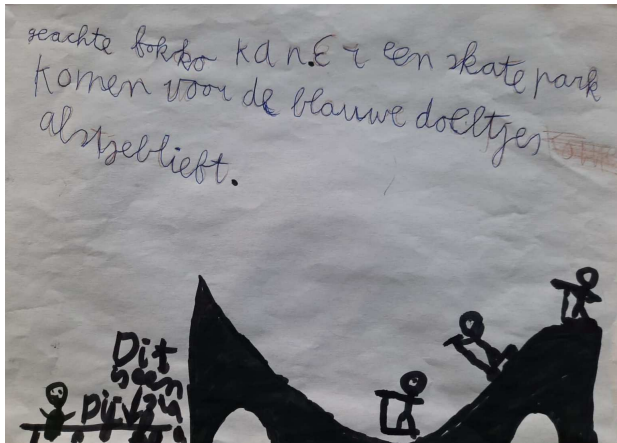 geachte fokko kan.Er een skate park
komen voor de blauwe doeltjes
alstjeblieft.
Dit